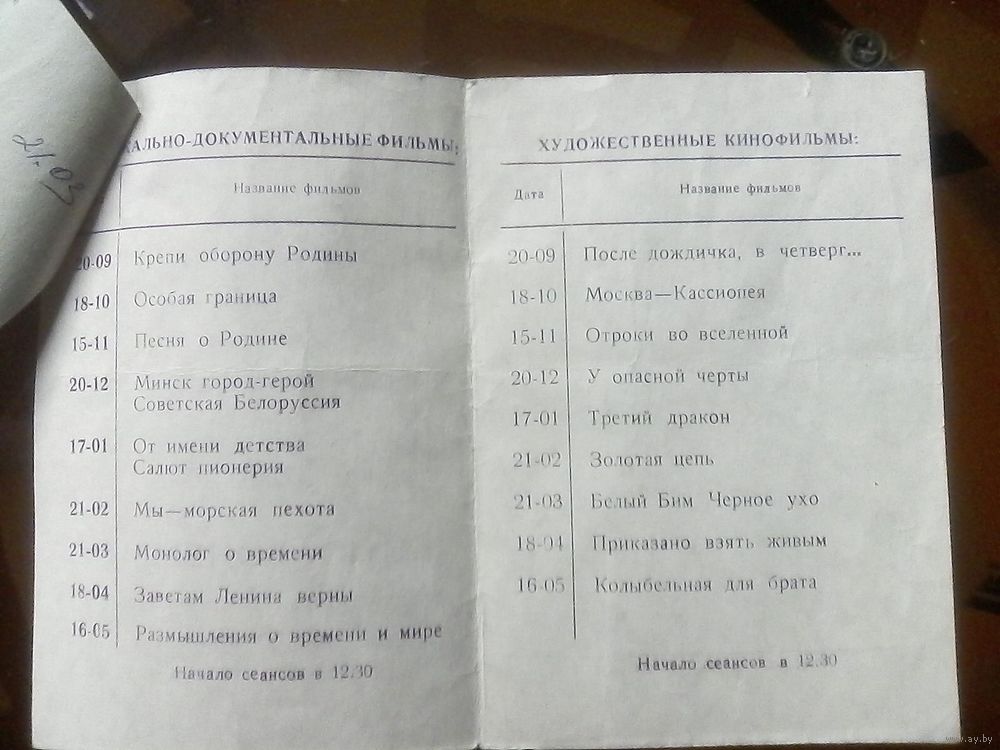 21.03
КАЛЬНО-ДОКУМЕНТАЛЬНЫЕ ФИЛЬМЫ:
Название фильмов
20-09 Крепи оборону Родины
18-10 Особая граница
15-11 Песня о Родине
20-12 Минск город-герой
Советская Белоруссия
17-01 От имени детства
Салют пионерия
21-02 Мы—морская пехота
21-03 Монолог о времени
18-04 Заветам Ленина верны
16-05 Размышления о времени и мире
Начало сеансов в 12.30
ХУДОЖЕСТВЕННЫЕ КИНОФИЛЬМЫ:
Дата Название фильмов
20-09 После дождичка, в четверг...
18-10 Москва—Кассиопея
15-11 Отроки во вселенной
20-12 У опасной черты
17-01 Третий дракон
21-02 Золотая цепь
21-03 Белый Бим Черное ухо
18-04 Приказано взять живым
16-05 Колыбельная для брата
Начало сеансов в 12.30
www.ay.by